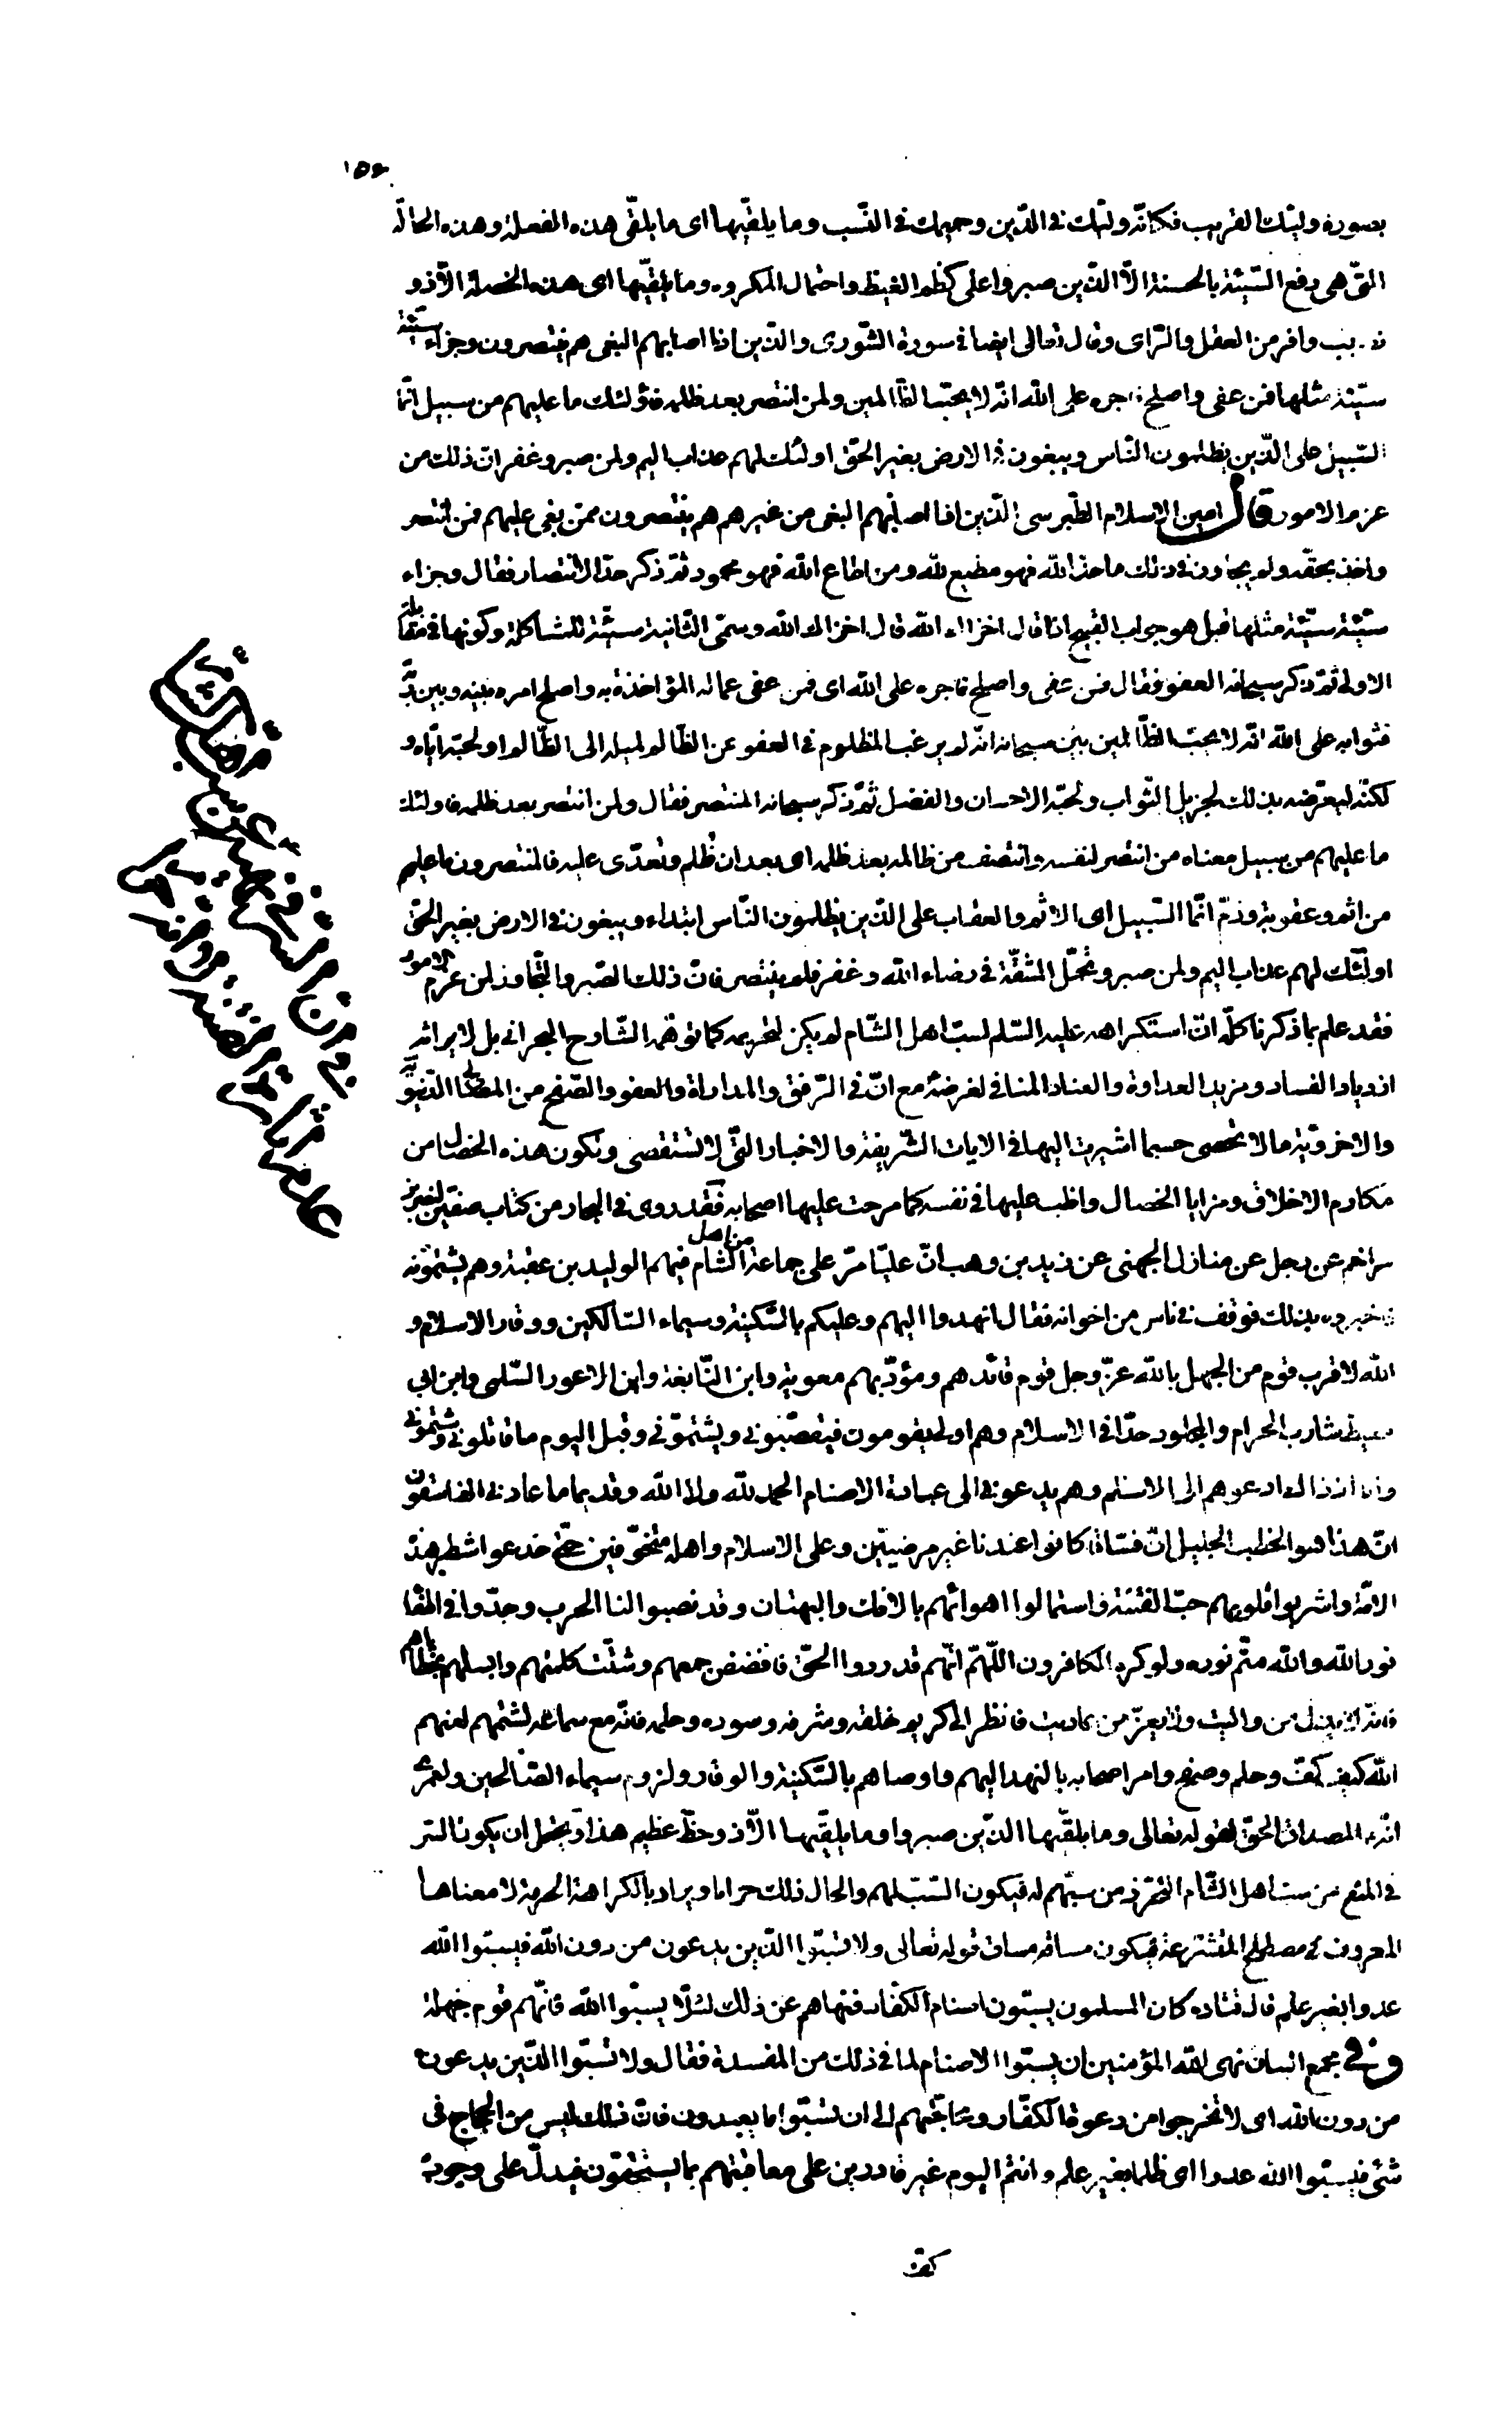 ١٥٤
بصورة وليّك القريب فكانّه وليّك فى الدّين وحميمك فى النّسب وما يلقّيها اى ما يلقّى هذه الفعلة وهذه الحالة
الّتى هى دفع السّيّئة بالحسنة الّا الّذين صبروا على كظم الغيظ واحتمال المكروه وما يلقّيها اى هذه الخصلة الّا ذو
نصيب وافر من العقل والرّاى وقال تعالى ايضا فى سورة الشّورى والّذين اذا اصابهم البغى هم ينتصرون وجزاء سيّئة
سيّئة مثلها فمن عفى واصلح فاجره على الله انّه لا يحبّ الظّالمين ولمن انتصر بعد ظلمه فاولئك ما عليهم من سبيل انّما
السّبيل على الّذين يظلمون النّاس ويبغون فى الارض بغير الحقّ اولئك لهم عذاب اليم ولمن صبر وغفر انّ ذلك من
عزم الامور قال امين الاسلام الطّبرسى الّذين اذا اصابهم البغى من غيرهم هم ينتصرون ممّن بغى عليهم فمن انتصر
واخذ بحقّه ولم يجاوز فى ذلك ما حدّ الله فهو مطيع لله ومن اطاع الله فهو محمود ثمّ ذكر حدّ الانتصار فقال وجزاء
سيّئة سيّئة مثلها قيل هو جواب القبيح اذا قال اخزاك الله قال اخزاك الله وسمّى الثّانية سيّئة للمشاكلة وكونها فى مقابلة
الاولى ثمّ ذكر سبحانه العفو فقال فمن عفى واصلح فاجره على الله اى فمن عفى عما له المؤاخذة به واصلح امره بينه وبين ربّه
فثوابه على الله انّه لا يحبّ الظّالمين بيّن سبحانه انّه لم يرغب المظلوم فى العفو عن الظّالم لميله الى الظّالم او لحبّه ايّاه و
لكنّه ليعرّضه بذلك لجزيل الثّواب ولحبّه الاحسان والفضل ثمّ ذكر سبحانه المنتصر فقال ولمن انتصر بعد ظلمه فاولئك
ما عليهم من سبيل معناه من انتصر لنفسه وانتصف من ظالمه بعد ظلمه اى بعد ان ظُلم وتعدّى عليه فالمنتصرون ما عليهم
من اثم وعقوبة وذمّ انّما السّبيل اى الاثم والعقاب على الّذين يظلمون النّاس ابتداء ويبغون فى الارض بغير الحقّ
اولئك لهم عذاب اليم ولمن صبر وتحمّل المشقّة فى رضاء الله وغفر فلم ينتصر فانّ ذلك الصّبر والتّجاوز لمن عزم الامور
فقد علم بما ذكرنا كلّه انّ استكراهه عليه السّلم لسبّ اهل الشّام لم يكن لتحريمه كما توهّمه الشّارح البحرانى بل لايراثه
ازدياد الفساد ومزيد العداوة والعناد المنافى لغرضه مع انّ فى الرّفق والمداراة والعفو والصّفح من المصالح الدّنيويّة
والاخرويّة ما لا يحصى حسبما اشيرت اليها فى الايات الشّريفة والاخبار الّتى لا تستقصى ولكون هذه الخصال من
مكارم الاخلاق ومزايا الخصال واظب عليها فى نفسه كما مرّ حثّ عليها اصحابه فقد روى فى البحار من كتاب صفّين لنصر بن
مزاحم عن رجل عن منازل الجهنى عن زيد بن وهب انّ عليّا مرّ على جماعة من اهل الشّام فيهم الوليد بن عقبة وهم يشتمونه
فاخبروه بذلك فوقف فى ناس من اخوانه فقال انهدوا اليهم وعليكم بالسّكينة وسيماء السّالكين ووقار الاسلام و
الله لاقرب قوم من الجهل بالله عزّ وجل قوم قائدهم ومؤدّبهم معوية وابن النّابغة وابن الاعور السّلمى وابن ابى
معيط شارب الحرام والمجلود حدّا فى الاسلام وهم اولى يقومون فيقصبونى ويشتمونى وقبل اليوم ما قاتلونى وشتمونى
وانا اذ ذاك ادعوهم الى الاسلام وهم يدعونى الى عبادة الاصنام الحمد لله ولا اله الا الله وقديما ما عادنى الفاسقون
انّ هذا هو الخطب الجليل انّ فسّاقا كانوا عندنا غير مرضيّين وعلى الاسلام واهله متخوّفين حتّى خدعوا شطر هذه
الامّة واشربوا قلوبهم حبّ الفتنة فاستمالوا اهوائهم بالافك والبهتان وقد نصبوا لنا الحرب وجدّوا فى اطفاء
نور الله والله متمّ نوره ولو كره الكافرون اللّهمّ انّهم قد ردوا الحقّ فافضض جمعهم وشتّت كلمتهم وابسلهم بخطاياهم
فانّه لا يذل من واليت ولا يعزّ من عاديت فانظر الى كريم خلقه وشرفه وسودده وحلمه فانّه مع سماعه لشتمهم لعنهم
الله كيف كفّ وحلم وصفح وامر اصحابه بالنهد اليهم واوصاهم بالسّكينة والوقار ولزوم سيماء الصّالحين ولعمرى
انّه المصداق الحقّ لقوله تعالى وما يلقّيها الّا الّذين صبروا وما يلقّيها الّا ذو حظّ عظيم هذا ويحتمل ان يكون السّر
فى المنع من سبّ اهل الشّام التّحرّز من سبّهم له فيكون السّبّ لهم والحال ذلك حراما ويراد بالكراهة الحرمة لا معناها
المعروف فى مصطلح المتشرّعة فيكون مساقه مساق قوله تعالى ولا تسبّوا الّذين يدعون من دون الله فيسبّوا الله
عدوا بغير علم قال قتاده كان المسلمون يسبّون اصنام الكفّار فنهاهم عن ذلك لئلّا يسبّوا الله فانّهم قوم جهلة
وفى مجمع البيان نهى الله المؤمنين ان يسبّوا الاصنام لما فى ذلك من المفسدة فقال ولا تسبّوا الّذين يدعون
من دون الله اى لا تخرجوا من دعوة الكفّار ومحاجّتهم الى ان تسبّوا ما يعبدون فانّ ذلك ليس من الحجاج فى
شئ فيسبّوا الله عدوا اى ظلما بغير علم وانتم اليوم غير قادرين على معاقبتهم بما يستحقّون فيدلّ على وجوب
كفّ